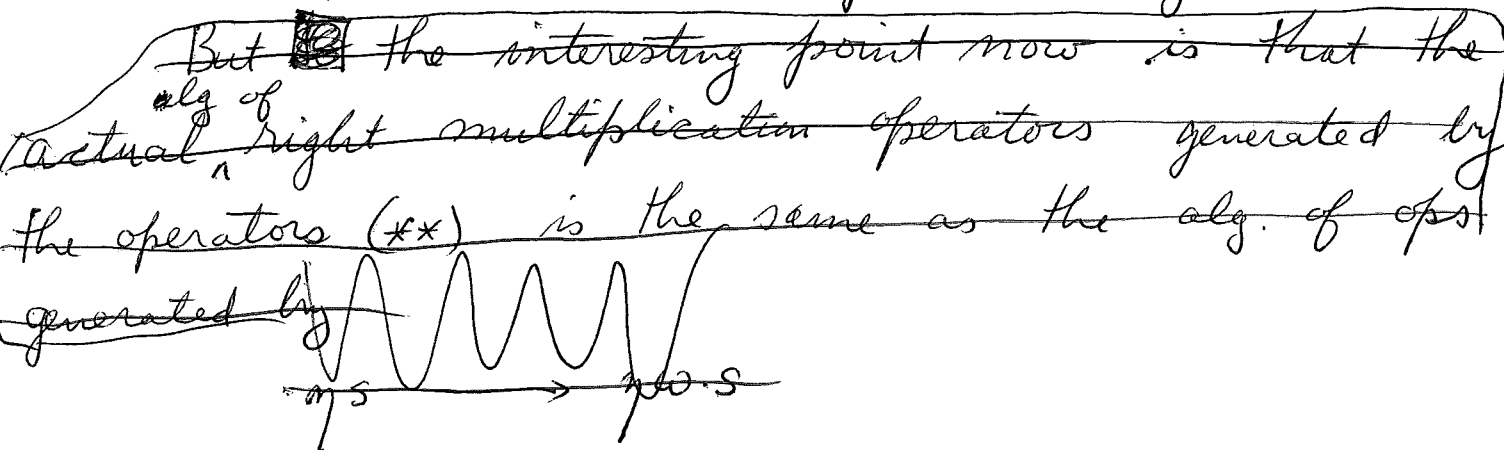 But the interesting point now is that the
actual alg of right multiplication operators generated by
the operators (**) is the same as the alg. of ops
generated by